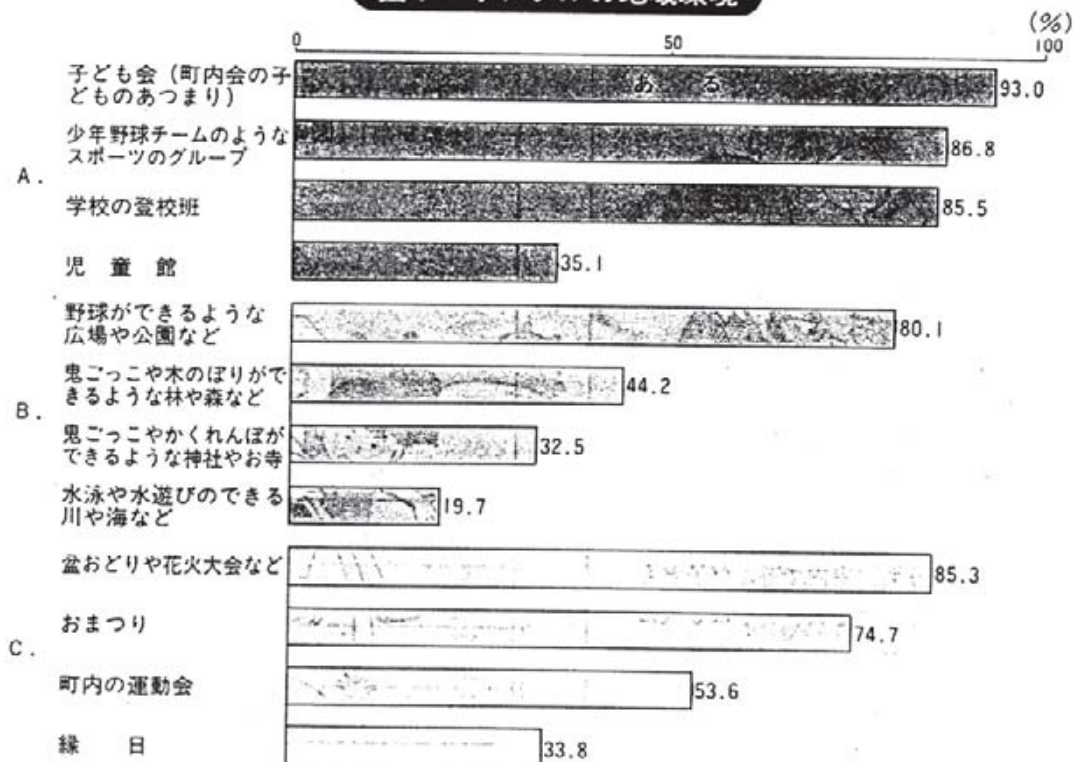 地域環境
(%)
0 50 100
子ども会(町内会の子
どものあつまり)
ある
93.0
少年野球チームのような
スポーツのグループ
86.8
A.
学校の登校班
85.5
児童館
35.1
野球ができるような
広場や公園など
80.1
鬼ごっこや木のぼりがで
きるような林や森など
44.2
B.
鬼ごっこやかくれんぼが
できるような神社やお寺
32.5
水泳や水遊びのできる
川や海など
19.7
盆おどりや花火大会など
85.3
おまつり
74.7
C.
町内の運動会
53.6
縁日
33.8